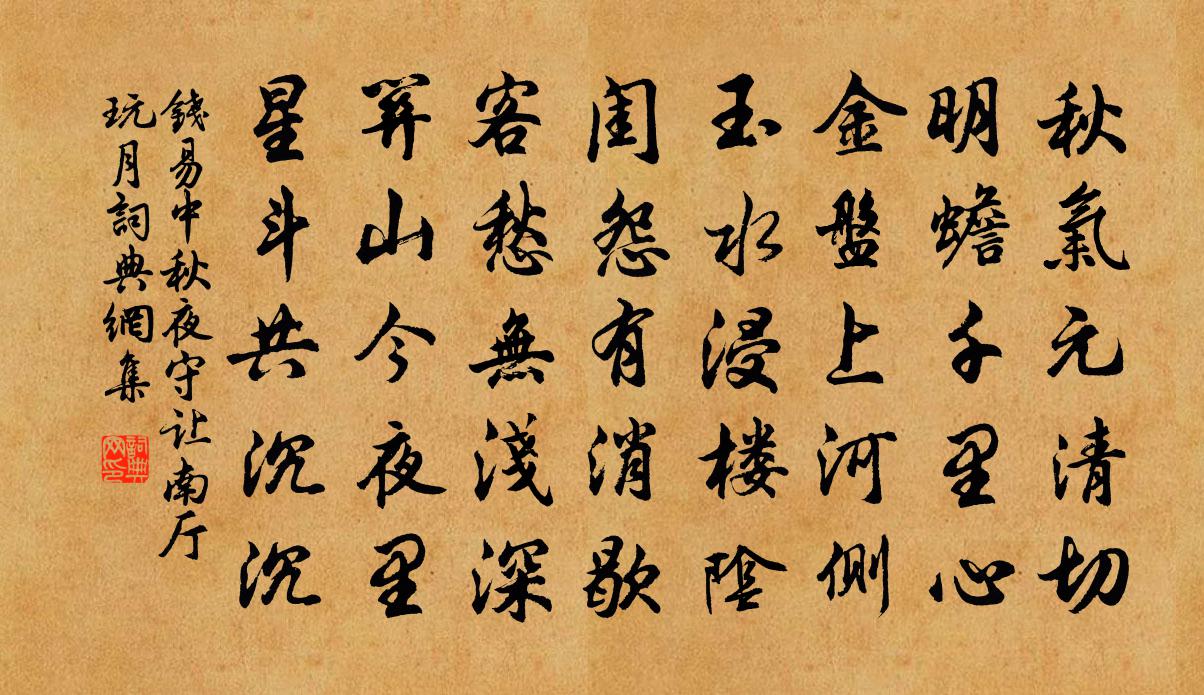 秋氣元清切
明蟾千里心
金盤上河側
玉水浸楼陰
閨怨有消歇
客愁無淺深
关山今夜里
星斗共沉沉
錢易中秋夜守让南厅
玩月詞典網集
詞典网印